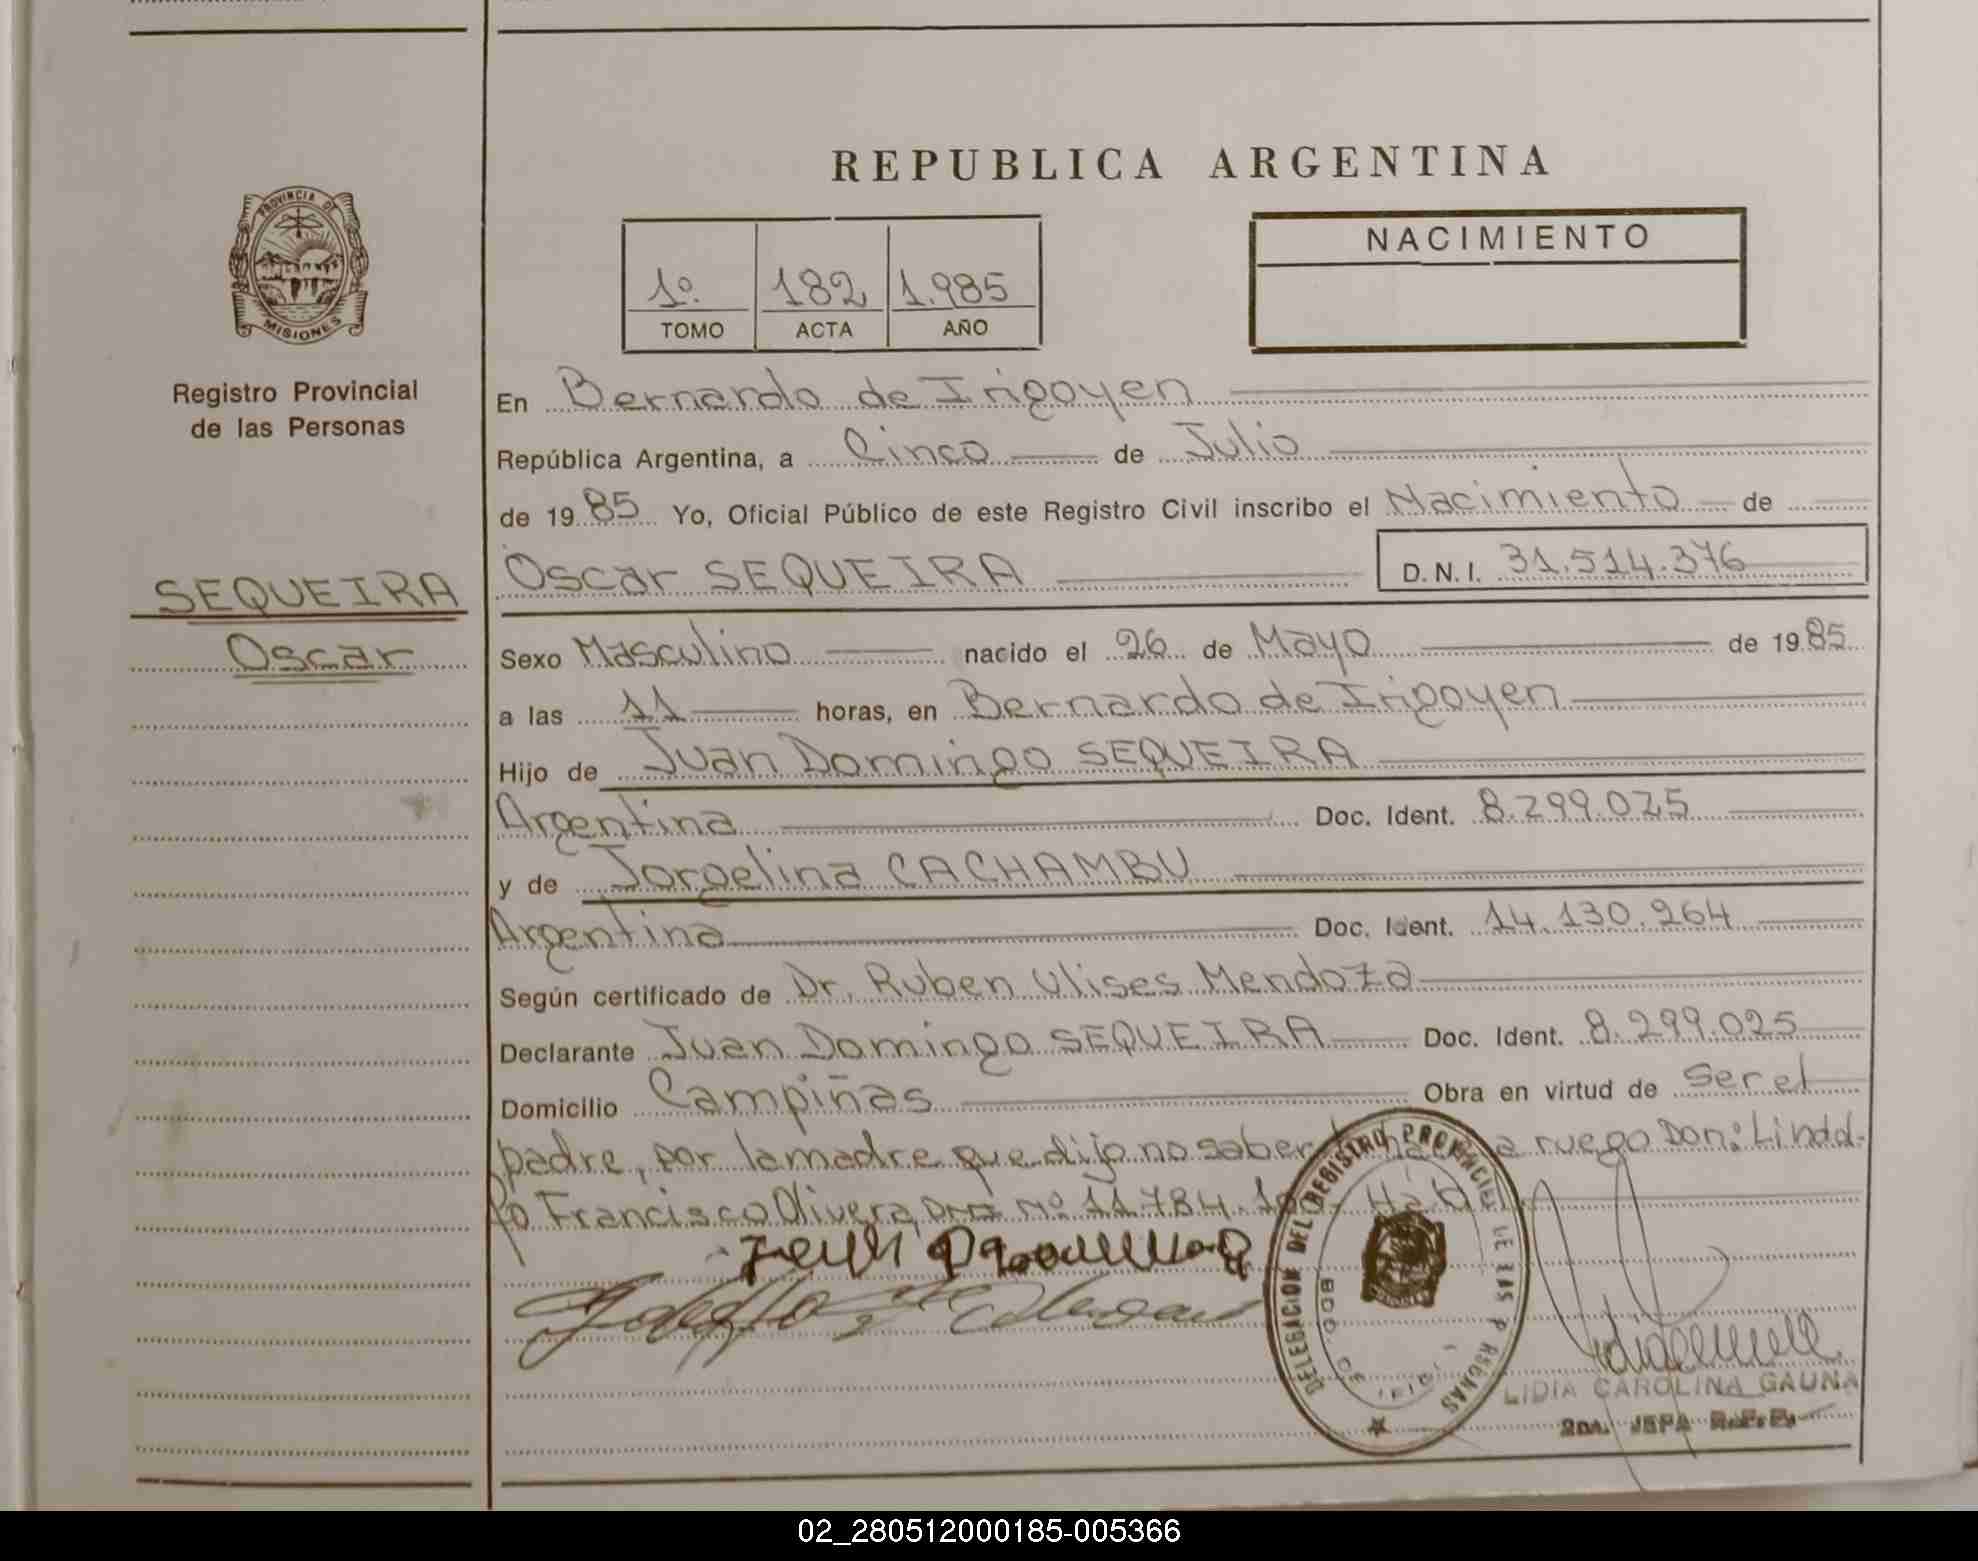 REPUBLICA ARGENTINA
PROVINCIA DE
MISIONES
Registro Provincial
de las Personas
SEQUEIRA
Oscar
1º. 182 1.985
TOMO ACTA AÑO
NACIMIENTO
En Bernardo de Irigoyen
República Argentina, a Cinco de Julio
de 1985 Yo, Oficial Público de este Registro Civil inscribo el Nacimiento de
Oscar SEQUEIRA D.N.I. 31.514.376
Sexo Masculino nacido el 26 de Mayo de 1985
a las 11 horas, en Bernardo de Irigoyen
Hijo de Juan Domingo SEQUEIRA
Argentina Doc. Ident. 8.299.025
y de Jorgelina CACHAMBU
Argentina Doc. Ident. 14.130.264
Según certificado de Dr. Ruben Ulises Mendoza
Declarante Juan Domingo SEQUEIRA Doc. Ident. 8.299.025
Domicilio Campiñas Obra en virtud de ser el
padre, por la madre que dijo no saber a ruego Don: Lindol-
fo Francisco Olivera DNI Nº 11.784.
DELEGACION DEL REGISTRO PROVINCIAL DE LAS PERSONAS
LIDIA CAROLINA GAUNA
2DA. JEFA R.P.P.
02_280512000185-005366